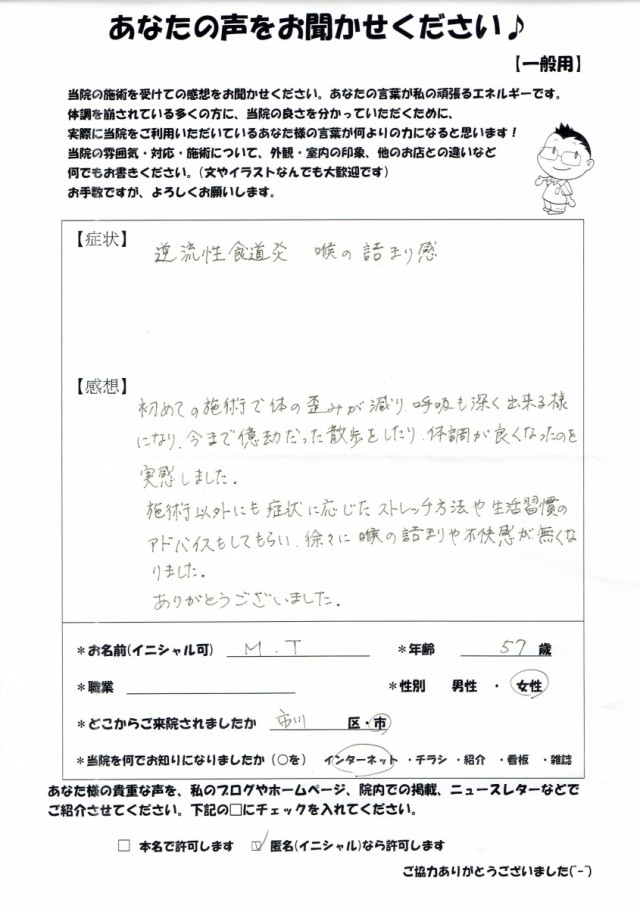 あなたの声をお聞かせください♪
【一般用】
当院の施術を受けての感想をお聞かせください。あなたの言葉が私の頑張るエネルギーです。
体調を崩されている多くの方に、当院の良さを分かっていただくために、
実際に当院をご利用いただいているあなた様の言葉が何よりの力になると思います！
当院の雰囲気・対応・施術について、外観・室内の印象、他のお店との違いなど
何でもお書きください。(文やイラストなんでも大歓迎です)
お手数ですが、よろしくお願いします。
【症状】 逆流性食道炎 喉の詰まり感
【感想】
初めての施術で体の歪みが減り、呼吸も深く出来る様
になり、今まで億劫だった散歩をしたり、体調が良くなったのを
実感しました。
施術以外にも症状に応じたストレッチ方法や生活習慣の
アドバイスもしてもらい、徐々に喉の詰まりや不快感が無くな
りました。
ありがとうございました。
＊お名前(イニシャル可) M.T ＊年齢 57 歳
＊職業 ＊性別 男性 ・ 女性
＊どこからご来院されましたか 市川 区・市
＊当院を何でお知りになりましたか（○を） インターネット ・チラシ ・紹介 ・看板 ・雑誌
あなた様の貴重な声を、私のブログやホームページ、院内での掲載、ニュースレターなどで
ご紹介させてください。下記の□にチェックを入れてください。
□ 本名で許可します ☑ 匿名(イニシャル)なら許可します
ご協力ありがとうございました(^-^)